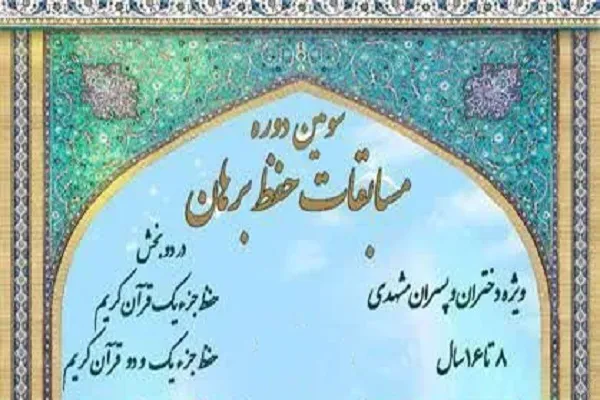 سومین دوره
مسابقات حفظ برهان
ویژه دختران و پسران مشهدی
۸ تا ۱۶ سال
در دو بخش
حفظ جزء یک قرآن کریم
حفظ جزء یک و دو قرآن کریم